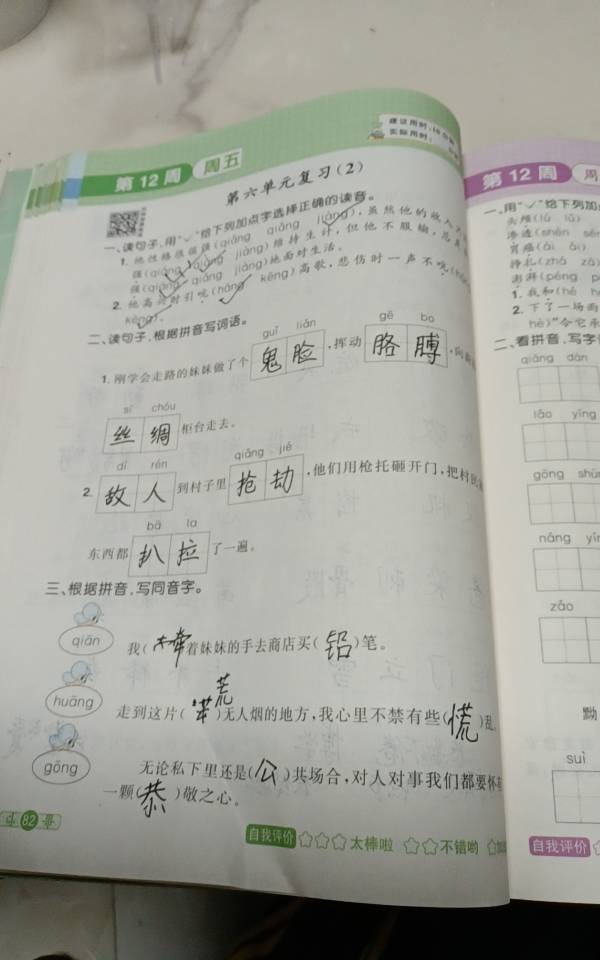 建议用时:10分钟
实际用时:
第12周 周五
第六单元复习(2)
一、读句子,用"✓"给下列加点字选择正确的读音。
1. 他性格很倔强(qiáng qiǎng jiàng),虽然他的收入
强(qiáng qiǎng jiàng)维持生计,但他不服输,总是
强(qiáng qiǎng jiàng)地面对生活。
2. 他高兴时引吭(háng kēng)高歌,悲伤时一声不吭(
kēng)。
二、读句子,根据拼音写词语。
guǐ liǎn gē bo
1. 刚学会走路的妹妹做了个 鬼脸 ,挥动 胳膊 ,向
sī chóu
丝绸 柜台走去。
dí rén qiǎng jié
2. 敌人 到村子里 抢劫 ,他们用枪托砸开门,把村民
bā la
东西都 扒拉 了一遍。
三、根据拼音,写同音字。
qiān
我(牵)着妹妹的手去商店买(铅)笔。
huāng
走到这片(荒)无人烟的地方,我心里不禁有些(慌)乱。
gōng
无论私下里还是(公)共场合,对人对事我们都要怀
一颗(恭)敬之心。
82
自我评价 ☆☆☆太棒啦 ☆☆不错哟 ☆加
第12周 周
一、用"✓"给下列加
头颅(lú lǔ)
胃癌(ái ài)
挣扎(zhá zā
澎湃(péng p
1. 我和(hé h
2. 下了一场雨
hè)"令它
二、看拼音,写字
qiāng dàn
lǎo yīng
gōng shì
náng yí
zǎo
黝
suì
自我评价